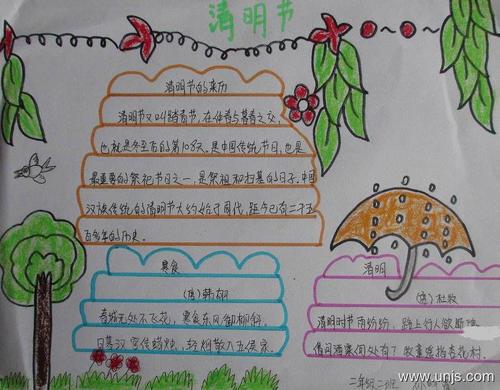 清明节
清明节的来历
清明节又叫踏青节,在仲春与暮春之交,
也就是冬至后的第108天。是中国传统节日,也是
最重要的祭祀节日之一,是祭祖和扫墓的日子。中国
汉族传统的清明节大约始于周代,距今已有二千五
百多年的历史。
寒食
(唐)韩翃
春城无处不飞花,寒食东风御柳斜。
日暮汉宫传蜡烛,轻烟散入五侯家。
清明
(唐)杜牧
清明时节雨纷纷,路上行人欲断魂
借问酒家何处有?牧童遥指杏花村。
二年级二班
www.unjs.com